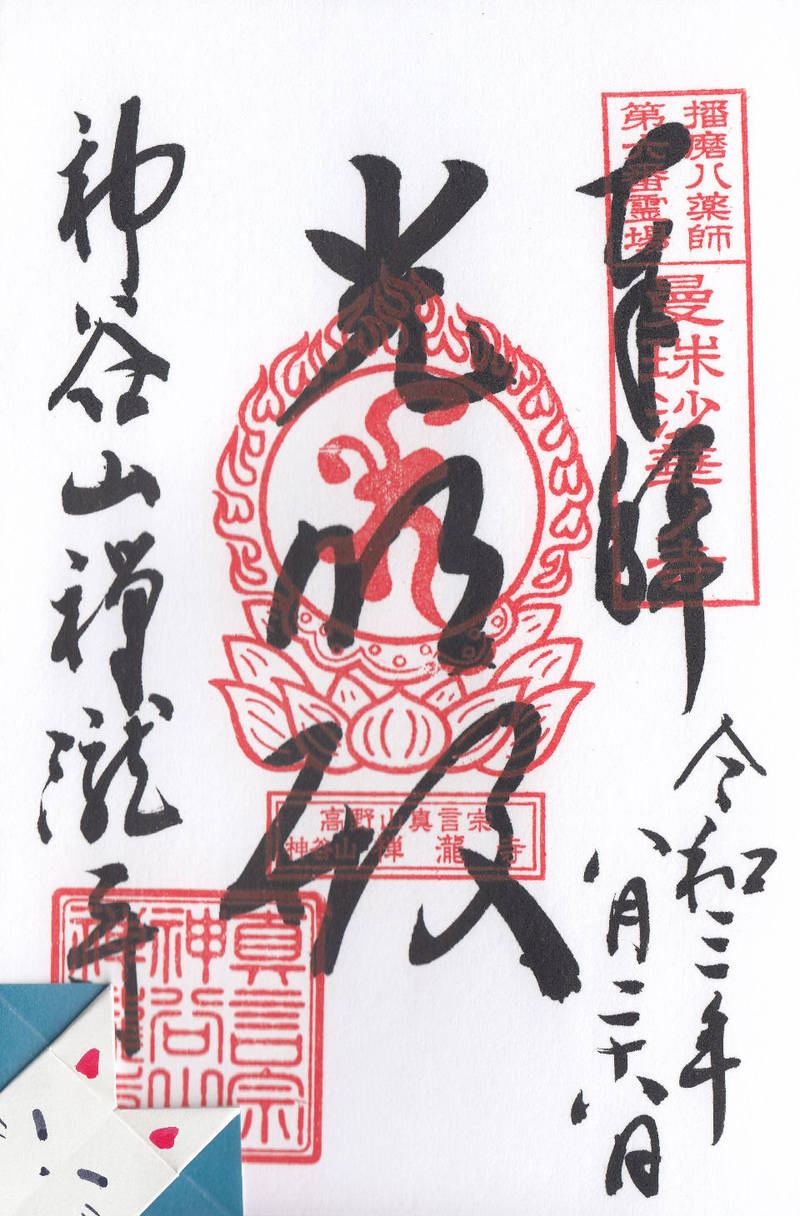 播磨八薬師
第六番霊場
曼珠沙華ノ寺
奉拝
令和三年
八月二十八日
光明殿
高野山真言宗
神谷山 禅瀧寺
神谷山禅瀧寺
真言宗
神谷山